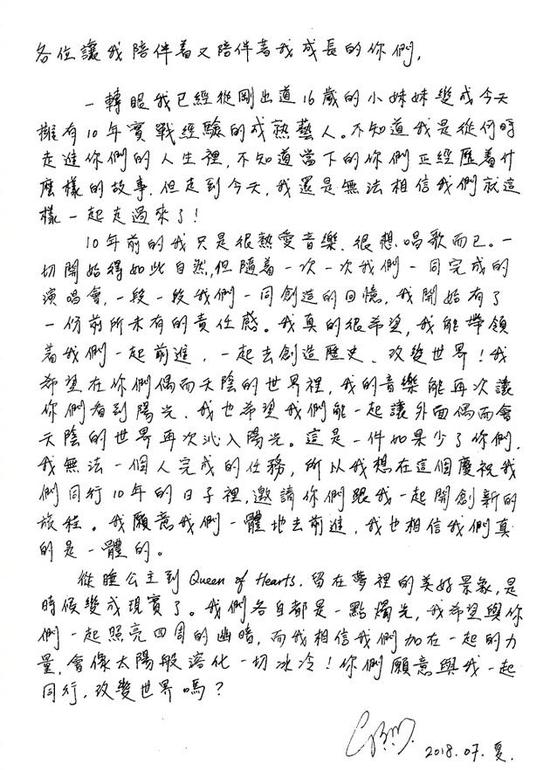 各位讓我陪伴着又陪伴着我成長的你們,
一轉眼我已經從剛出道16歲的小妹妹變成今天
擁有10年實戰經驗的成熟藝人。不知道我是從何時
走進你們的人生裡,不知道當下的你們正經歷着什
麼樣的故事,但走到今天,我還是無法相信我們就這
樣一起走過來了!
10年前的我只是很熱愛音樂、很想唱歌而已。一
切開始得如此自然,但隨着一次一次我們一同完成的
演唱會,一段一段我們一同創造的回憶,我開始有了
一份前所未有的責任感。我真的很希望,我能帶領
着我們一起前進,一起去創造歷史、改變世界!我
希望在你們偶而天陰的世界裡,我的音樂能再次讓
你們看到陽光、我也希望我們能一起讓外面偶而會
天陰的世界再次沁入陽光。這是一件如果少了你們,
我無法一個人完成的任務,所以我想在這個慶祝我
們同行10年的日子裡,邀請你們跟我一起開創新的
旅程。我願意我們一體地去前進,我也相信我們真
的是一體的。
從睡公主到Queen of Hearts,留在夢裡的美好景象,是
時候變成現實了。我們各自都是一點燭光,我希望與你
們一起照亮四周的幽暗,而我相信我們加在一起的力
量,會像太陽般溶化一切冰冷!你們願意與我一起
同行,改變世界嗎?
2018.07.夏.